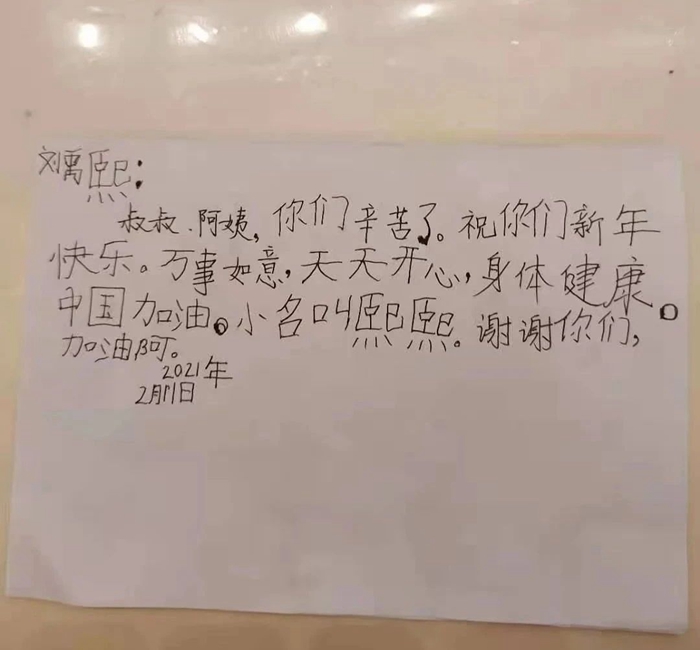 刘禹熙：
叔叔、阿姨，你们辛苦了。祝你们新年
快乐。万事如意，天天开心，身体健康。
中国加油。小名叫熙熙。谢谢你们，
加油阿。
2021年
2月11日